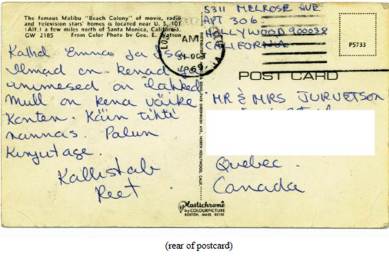 The famous Malibu "Beach Colony" of movie, radio
and television stars' homes is located near U. S. 101
(Alt.) a few miles north of Santa Monica, California.
GW 2185 From Color Photo by Geo. E. Watson
5311 MELROSE AVE
APT 306
HOLLYWOOD 900038
CALIFORNIA
AM
31 OCT
1969
P5733
POST CARD
Kallid Emme ja isa
Ilmad on kenad
inimesed on lahked
Mull on kena väike
Korter. Käin tihti
rannas. Palun
Kirjutage.
Kallistab
Reet
MR & MRS JURVETSON
Quebec
Canada
Plastichrome
by COLOURPICTURE
BOSTON, MASS.
(rear of postcard)